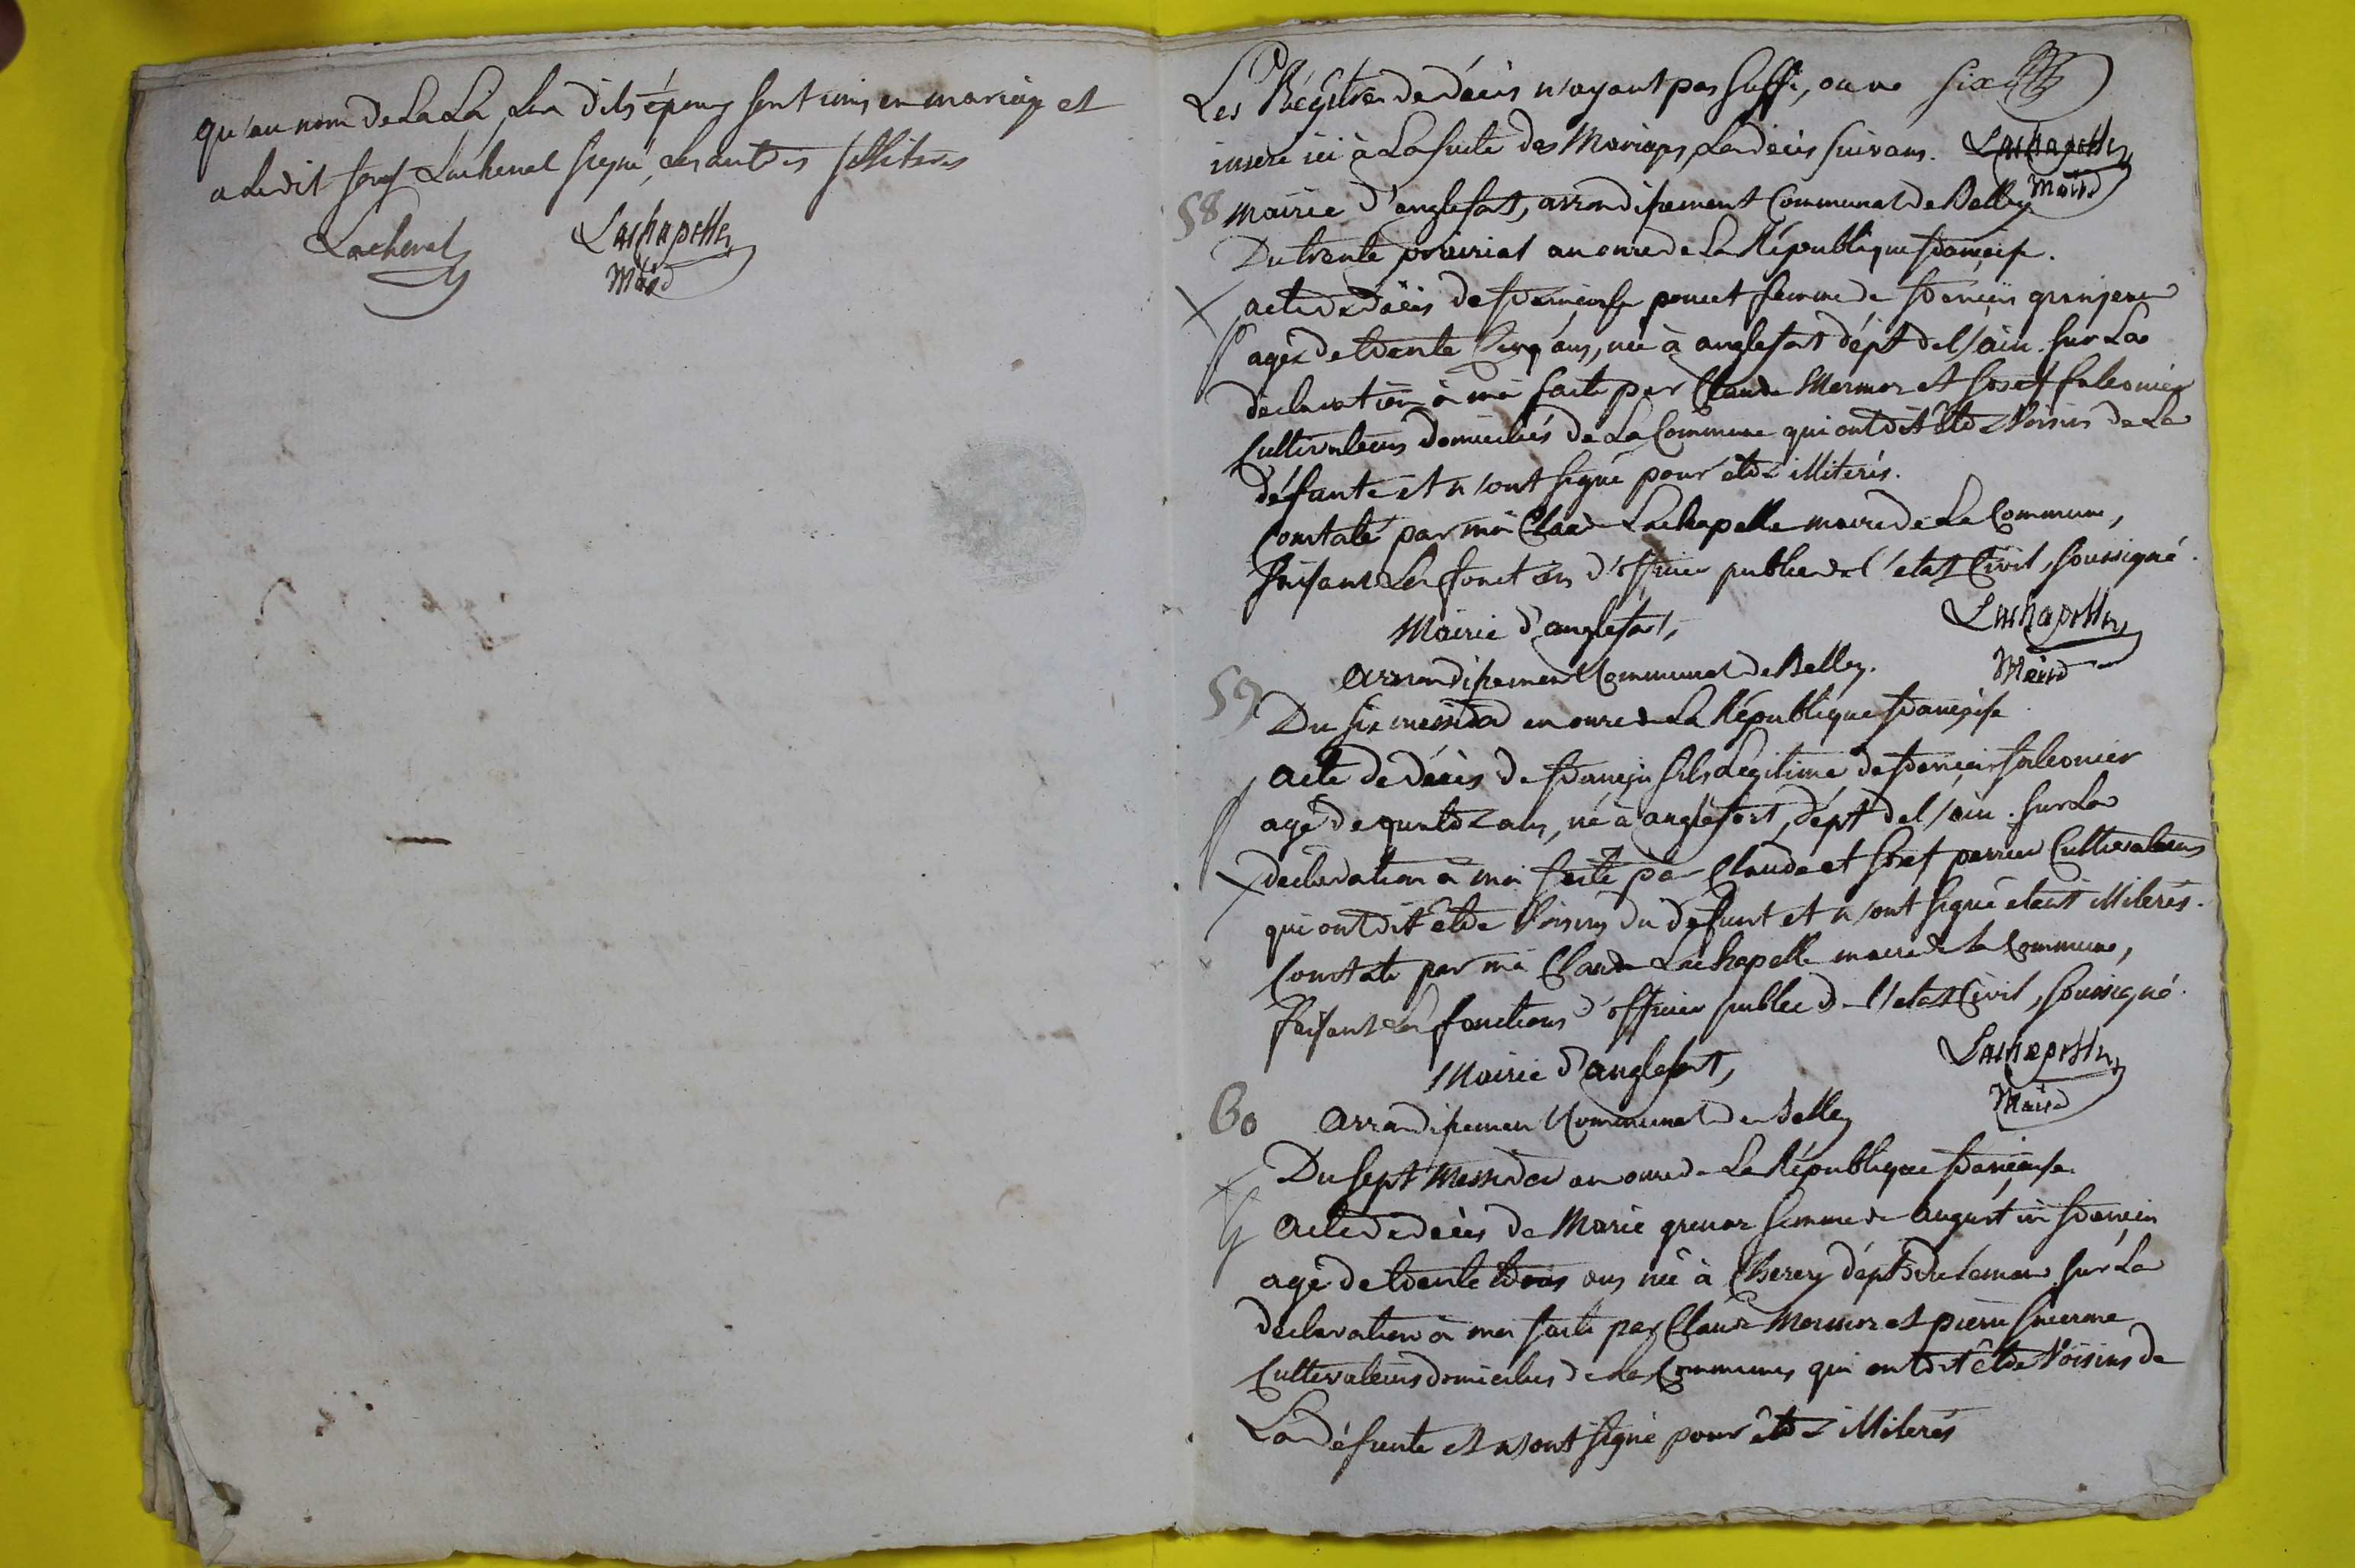 qu'au nom de La Loi, Les dits époux sont unis en mariage et
a Ledit Josef Lachenal signé, Les autres illitérés
Lachenal
Lachapelle
Maire
Les Régistres de décès n'ayant pas suffi, on a
inséré ici à La suite des Mariages, Les décès suivans.
six
Lachapelle
Maire
58 Mairie d'anglefort, arrondissement Communal de Belley
Du trente prairial an onze de La République française.
acte de décès de françoise poncet femme de françois grinjeon
agée de trente cinq ans, née à anglefort dépt de l'ain. sur La
déclaration à moi faite par Claude Mermoz et Josef falconier
Cultivateurs domiciliés de La Commune qui ont dit être Voisins de La
défunte et n'ont signé pour être illiterés.
Constaté par moi Claude Lachapelle maire de La Commune,
faisant Les fonctions d'officier public de l'etat Civil, soussigné.
Lachapelle
Maire
Mairie d'anglefort,
59 arrondissement Communal de Belley.
Du six messidor an onze de La République française
acte de décès de françois fils Légitime de françois falconier
agé de quatre ans, né à anglefort, dépt de l'ain. sur La
déclaration à moi faite par Claude et Josef perrier Cultivateurs
qui ont dit être Voisins du défunt et n'ont signé étant illiterés.
Constaté par moi Claude Lachapelle maire de la Commune,
faisant Les fonctions d'officier public de l'etat Civil, soussigné.
Lachapelle
Maire
Mairie d'anglefort,
60 arrondissement Communal de Belley
Du sept Messidor an onze de La République française
acte de décès de Marie femme de augustin françois
agée de trente trois ans née à dépt du Leman sur La
déclaration à moi faite par Claude Mermoz et pierre
Cultivateurs domiciliés de la Commune qui ont dit être Voisins de
La défunte et n'ont signé pour être illiterés